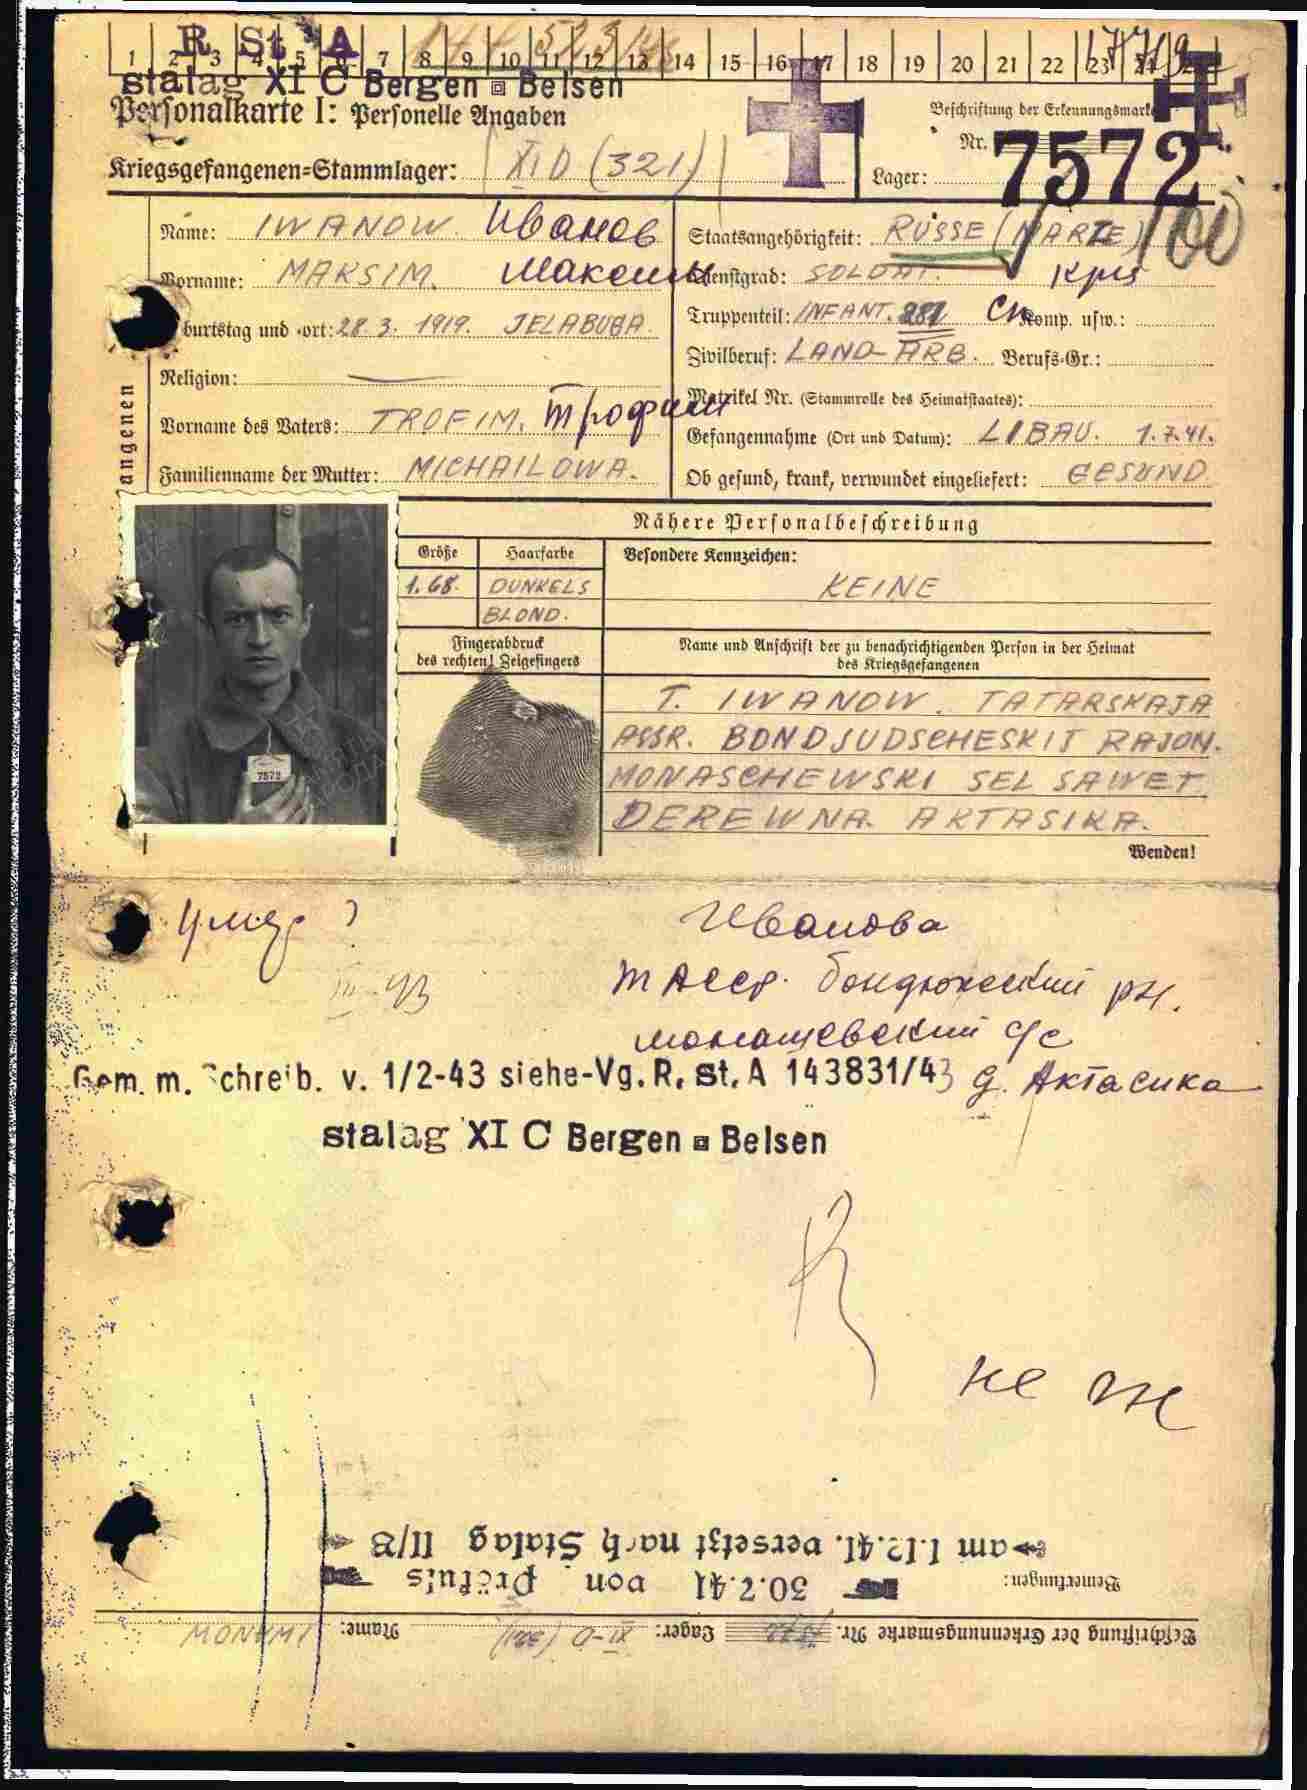 R St A
1 2 3 4 5 6 7 8 9 10 11 12 13 14 15 16 17 18 19 20 21 22 23 24 25
stalag XI C Bergen Belsen
Personalkarte I: Personelle Angaben
Beschriftung der Erkennungsmarke
Nr. 7572
Kriegsgefangenen-Stammlager: XI D (321)
Lager:
Name: IWANOW Иванов
Staatsangehörigkeit: RUSSE
100
Vorname: MAKSIM. Максим
Dienstgrad: SOLDAT. кр
Geburtstag und -ort: 28.3.1919. JELABUGA
Truppenteil: INFANT. Komp. usw.:
Zivilberuf: LAND-ARB. Berufs-Gr.:
Religion:
Matrikel Nr. (Stammrolle des Heimatstaates):
Vorname des Vaters: TROFIM. Трофим
Gefangennahme (Ort und Datum): LIBAU. 1.7.41.
Familienname der Mutter: MICHAILOWA.
Ob gesund, krank, verwundet eingeliefert: GESUND
angenen
Nähere Personalbeschreibung
Größe Haarfarbe Besondere Kennzeichen:
1.68. DUNKELS KEINE
BLOND.
Fingerabdruck
des rechten! Zeigefingers
Name und Anschrift der zu benachrichtigenden Person in der Heimat
des Kriegsgefangenen
7572
T. IWANOW. TATARSKAJA
ASSR. BONDJUDSCHESKIJ RAJON.
MONASCHEWSKI SEL SAWET
DEREWNA. AKTASIKA.
Wenden!
Иванова
III 43
ТАССР. Бондюжский рн.
Монашевский с/с
Gem. m. Schreib. v. 1/2-43 siehe-Vg. R. St. A 143831/43 д. Актасика
stalag XI C Bergen Belsen
не
am 1.12.41. versetzt nach Stalag II/B
Bemerkungen: 30.7.41 von Prökuls
Beschriftung der Erkennungsmarke Nr. 7572 Lager: XI-D (321) Name: IWANOW